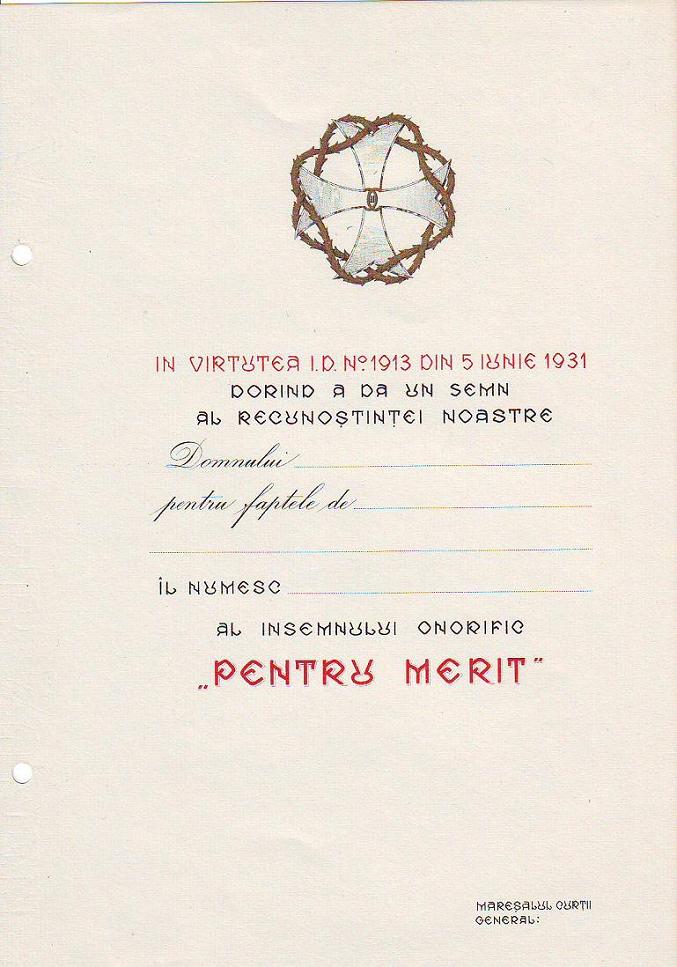 IN VIRTUTEA I.D. Nº 1913 DIN 5 IUNIE 1931
DORIND A DA UN SEMN
AL RECUNOȘTINȚEI NOASTRE
Domnului
pentru faptele de
ÎL NUMESC
AL INSEMNULUI ONORIFIC
„PENTRU MERIT”
MAREȘALUL CURȚII
GENERAL: